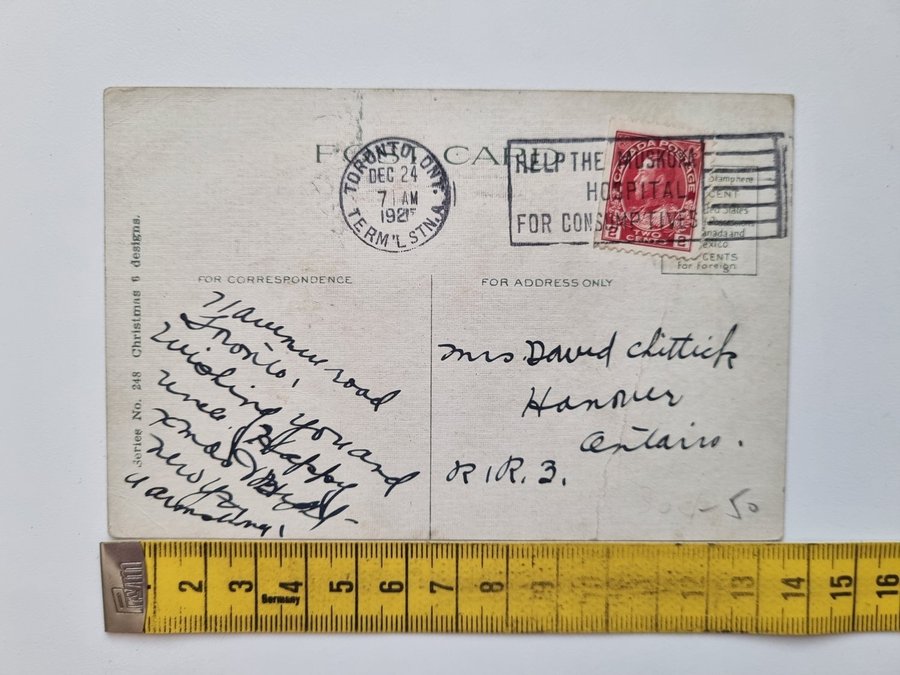 POST CARD
TORONTO, ONT.
DEC 24
7 AM
192
TERM'L STN. A.
HELP THE MUSKOKA
HOSPITAL
FOR CONSUMPTIVES
CANADA POSTAGE
2 TWO CENTS 2
Stamp here
CENT
United States
Canada and
Mexico
CENTS
for Foreign
Series No. 248 Christmas 6 designs.
FOR CORRESPONDENCE
FOR ADDRESS ONLY
road
Toronto,
Wishing you and
Happy
Xmas &
new
Mrs. David Chittick
Hanover
Ontairo.
R.R. 3.
50
Prym
2 3 4 5 6 7 8 9 10 11 12 13 14 15 16
Germany